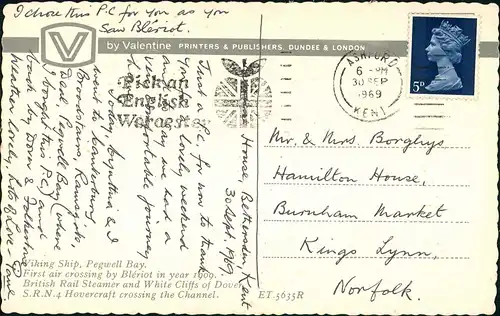 I chose this P.C for you as you
saw Blériot.
by Valentine PRINTERS & PUBLISHERS, DUNDEE & LONDON
V
ASHFORD
6 PM
30 SEP
1969
KENT
5D
Pick an
English
Worcester
House, Bethersden Kent
30 Sept. 1969.
Just a P.C. for now to thank
you lovely weekend
day we had a
journey
Today, Cynthia & I
went to Canterbury,
Broadstairs, Ramsgate,
Deal, Pegwell Bay (where
I bought this P.C.) and
back by Dover & Folkestone
weather lovely, lots of love
Mr. & Mrs. Borghys
Hamilton House,
Burnham Market
Kings Lynn,
Norfolk.
Viking Ship, Pegwell Bay.
First air crossing by Blériot in year 1909.
British Rail Steamer and White Cliffs of Dover
S.R.N.4 Hovercraft crossing the Channel.
ET.5635R